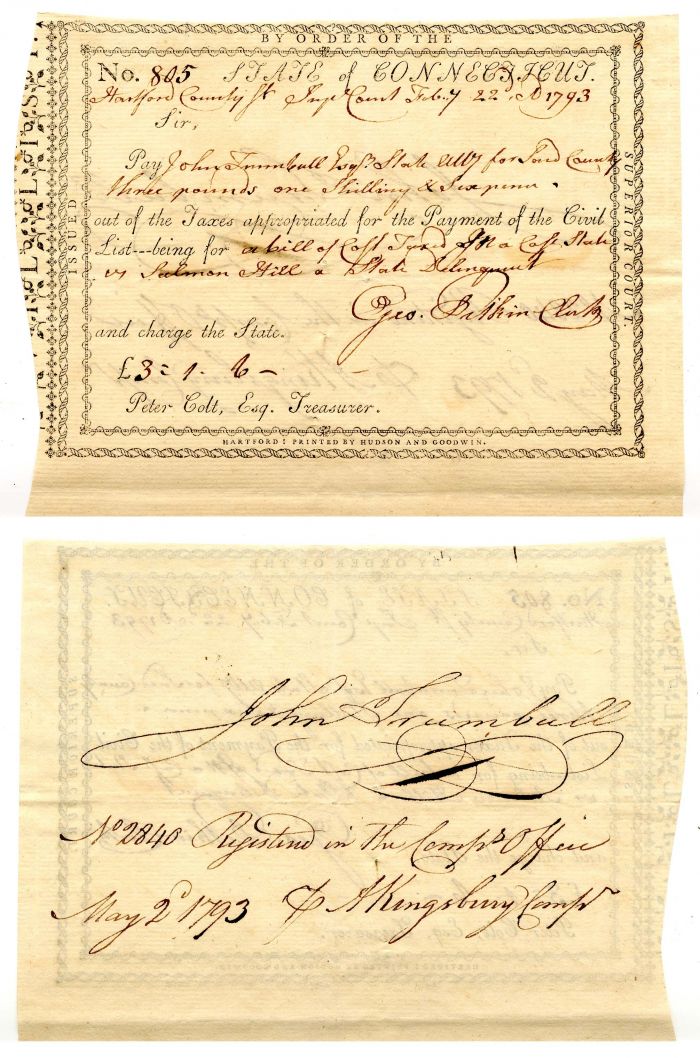 BY ORDER OF THE
No. 805 STATE of CONNECTICUT.
Hartford County Ss Supr Court Feby 22d AD 1793
Sir,
Pay John Trumbull Esqr. State Atty for said County
three pounds one Shilling & Sixpence.
out of the Taxes appropriated for the Payment of the Civil
List---being for a bill of Cost Taxed in a Case State
vs Salmon Hill a State Delinquent
Geo. Pitkin Clerk
and charge the State.
£3 = 1 - 6 -
Peter Colt, Esq. Treasurer.
ISSUED
SUPERIOR COURT.
HARTFORD: PRINTED BY HUDSON AND GOODWIN.
John Trumbull
No 2840 Registerd in the Compts Office
May 2d 1793 P AKingsbury Compt